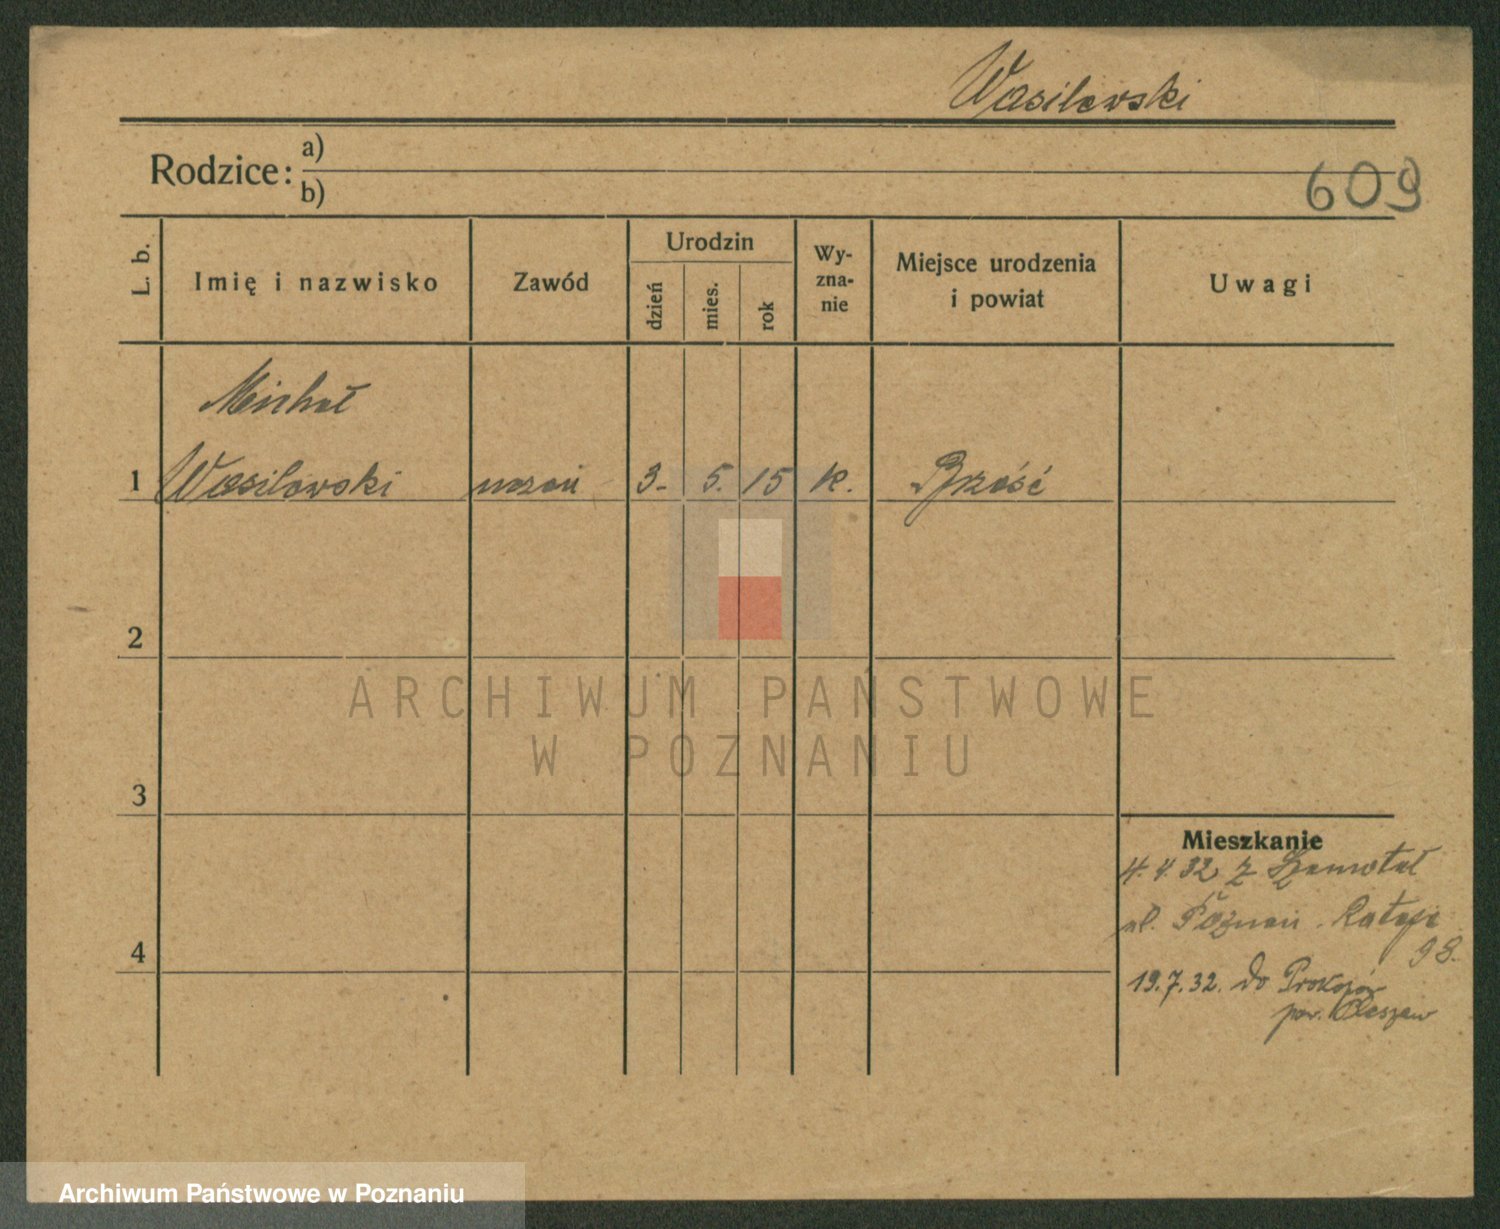 Wasilewski
Rodzice: a)
b)
609
L. b.
Imię i nazwisko
Zawód
Urodzin
dzień
mies.
rok
Wy-
zna-
nie
Miejsce urodzenia
i powiat
Uwagi
Michał
1 Wasilewski uczeń 3. 5. 15 k. Brześć
2
3
4
Mieszkanie
4.4.32 z Szamotuł
ul. Poznań. Rataje
98.
19.7.32. do
pow.
ARCHIWUM PAŃSTWOWE
W POZNANIU
Archiwum Państwowe w Poznaniu